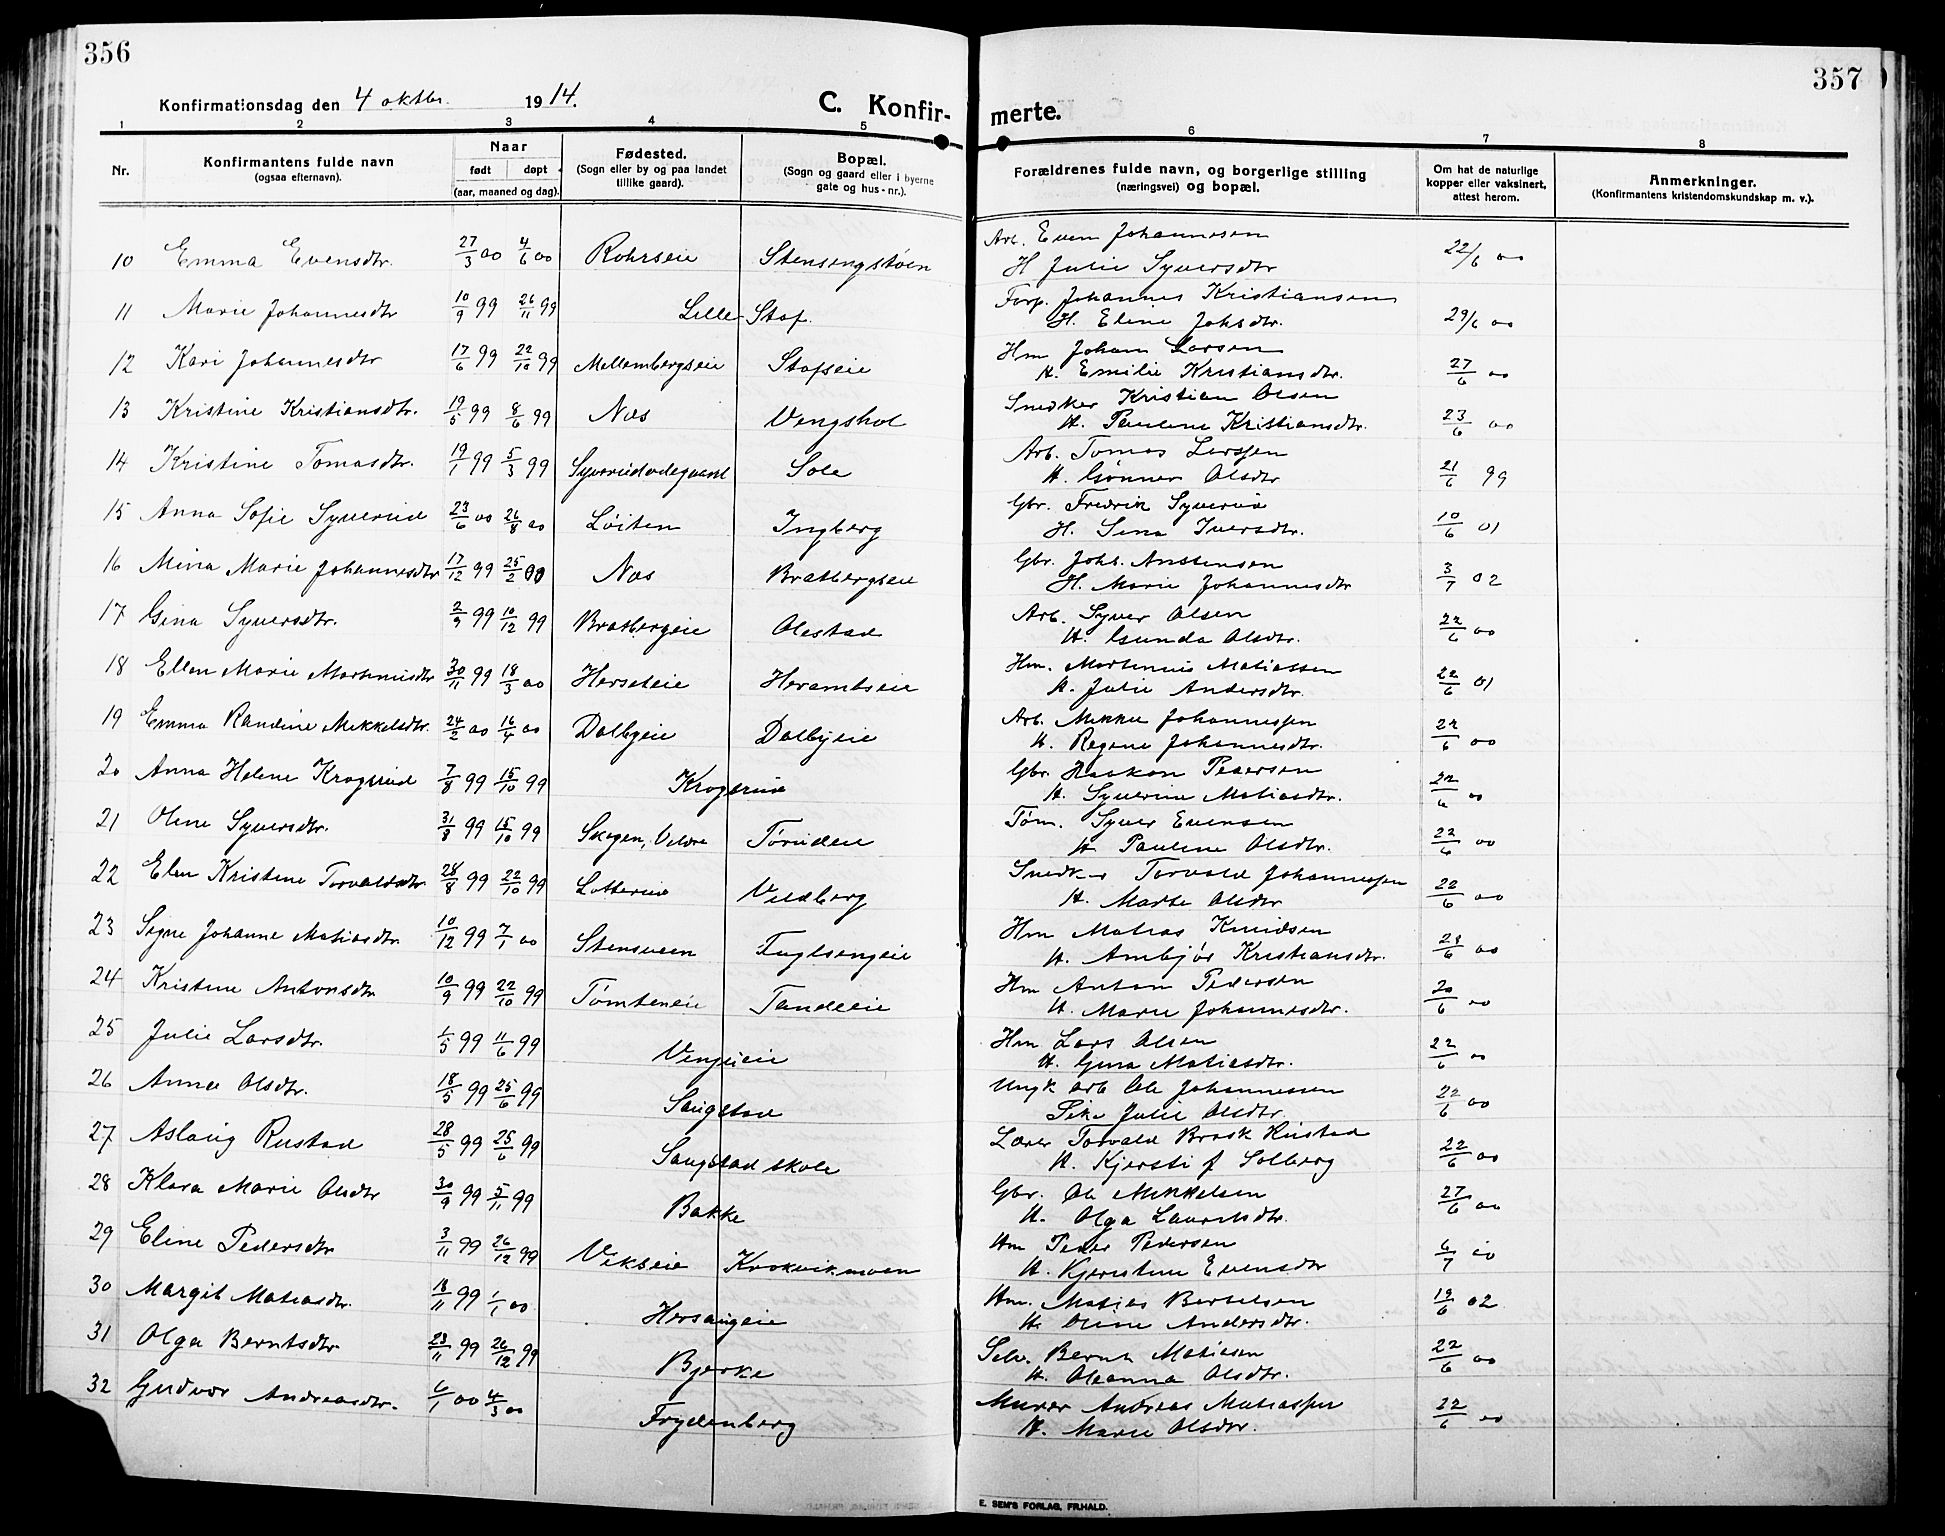 356
357
Konfirmationsdag den 4 oktbr. 1914.
C. Konfir-
merte.
1 2 3 4 5 6 7 8
Nr.
Konfirmantens fulde navn
(ogsaa efternavn).
Naar
født døpt
(aar, maaned og dag).
Fødested.
(Sogn eller by og paa landet
tillike gaard).
Bopæl.
(Sogn og gaard eller i byerne
gate og hus-nr.).
Forældrenes fulde navn, og borgerlige stilling
(næringsvei) og bopæl.
Om hat de naturlige
kopper eller vaksinert,
attest herom.
Anmerkninger.
(Konfirmantens kristendomskundskap m. v.).
10 Emma Evensdtr. 27/3 00 4/6 00 Rohrseie Stensengstøen Arb. Even Johannesen 22/6 00
H Julie Syversdtr
11 Marie Johannesdtr 10/9 99 26/11 99 Lille Staf. Forp. Johannes Kristiansen 29/6 00
H. Eline Johsdtr.
12 Kari Johannesdtr 17/6 99 22/10 99 Mellembergseie Stafseie Hm Johan Larsen 27/6 00
H. Emilie Kristiansdtr.
13 Kristine Kristiansdtr. 19/5 99 8/6 99 Nes Vengshol Snedker Kristian Olsen 23/6 00
H. Pauline Kristiansdtr.
14 Kristine Tomasdtr. 19/1 99 5/3 99 Syverudødegaard Sole Arb. Tomas Larssen 21/6 99
H. Gunner Olsdtr
15 Anna Sofie Syverud 23/6 00 26/8 00 Løiten Ingberg Gbr. Fredrik Syverud 10/6 01
H. Sina Iversdtr.
16 Mina Marie Johannesdtr 17/12 99 25/2 00 Nes Bratbergseie Gbr. Johs. Anstensen 3/7 02
H. Marie Johannesdtr
17 Gina Syversdtr. 2/9 99 10/12 99 Bratbergeie Olestad Arb. Syver Olsen 22/6 00
H. Gunda Olsdtr.
18 Ellen Marie Martinusdtr 30/11 99 18/3 00 Herseteie Heramtseie Hm. Martinus Matiassen 22/6 01
H. Julie Andersdtr.
19 Emma Randine Mikkelsdtr. 24/2 00 16/4 00 Dalbyeie Dalbyeie Arb. Mikkel Johannessen 22/6 00
H. Regine Johannesdtr.
20 Anna Helene Krogsrud 7/8 99 15/10 99 Krogsrud Gbr. Haakon Pedersen 22/6 00
H. Syverine Matiasdtr.
21 Oline Syversdtr. 31/8 99 15/10 99 Skogen, Veldre Tørudeie Tøm. Syver Evensen 22/6 00
H. Pauline Olsdtr.
22 Elen Kristine Torvaldsdtr 28/8 99 22/10 99 Lotterud Vedberg Snedker Torvald Johannessen 22/6 00
H. Marte Olsdtr
23 Signe Johanne Matiasdtr. 10/12 99 7/1 00 Stensveen Fuglsengeie Hm Matias Knudsen 29/6 00
H. Anbjør Kristiansdtr.
24 Kristine Antonsdtr 10/9 99 22/10 99 Tømteneie Tandeeie Hm Anton Pedersen 20/6 00
H. Marie Johannesdtr.
25 Julie Larsdtr. 1/5 99 11/6 99 Vengeie Hm Lars Olsen 22/6 00
H. Gina Matiasdtr.
26 Anna Olsdtr. 18/5 99 25/6 99 Saugstad Ungk arb Ole Johannessen 22/6 00
Pike Julie Olsdtr.
27 Aslaug Rustad 28/5 99 25/6 99 Saugstad skole Lærer Torvald Brask Rustad 22/6 00
H. Kjersti f Solberg
28 Klara Marie Olsdtr 30/9 99 5/11 99 Bakke Gbr. Ole Mikkelsen 27/6 00
H. Olga Lauritsdtr.
29 Eline Pedersdtr 3/11 99 26/12 99 Vekseie Krokvikmoen Hm Peder Pedersen 6/7 00
H. Kjerstine Evensdtr
30 Margit Matiasdtr. 18/11 99 1/1 00 Hersaugeie Hm. Matias Bertelsen 19/6 02
H. Oline Andersdtr.
31 Olga Berntsdtr 23/11 99 26/12 99 Bjerke Selv. Bernt Matiasen 22/6 00
H. Oleanna Olsdtr.
32 Gudvor Andreasdtr. 6/1 00 4/3 00 Frydenberg Murer Andreas Matiassen 22/6 00
H. Marie Olsdtr.
E. SEM'S FORLAG, FR.HALD.